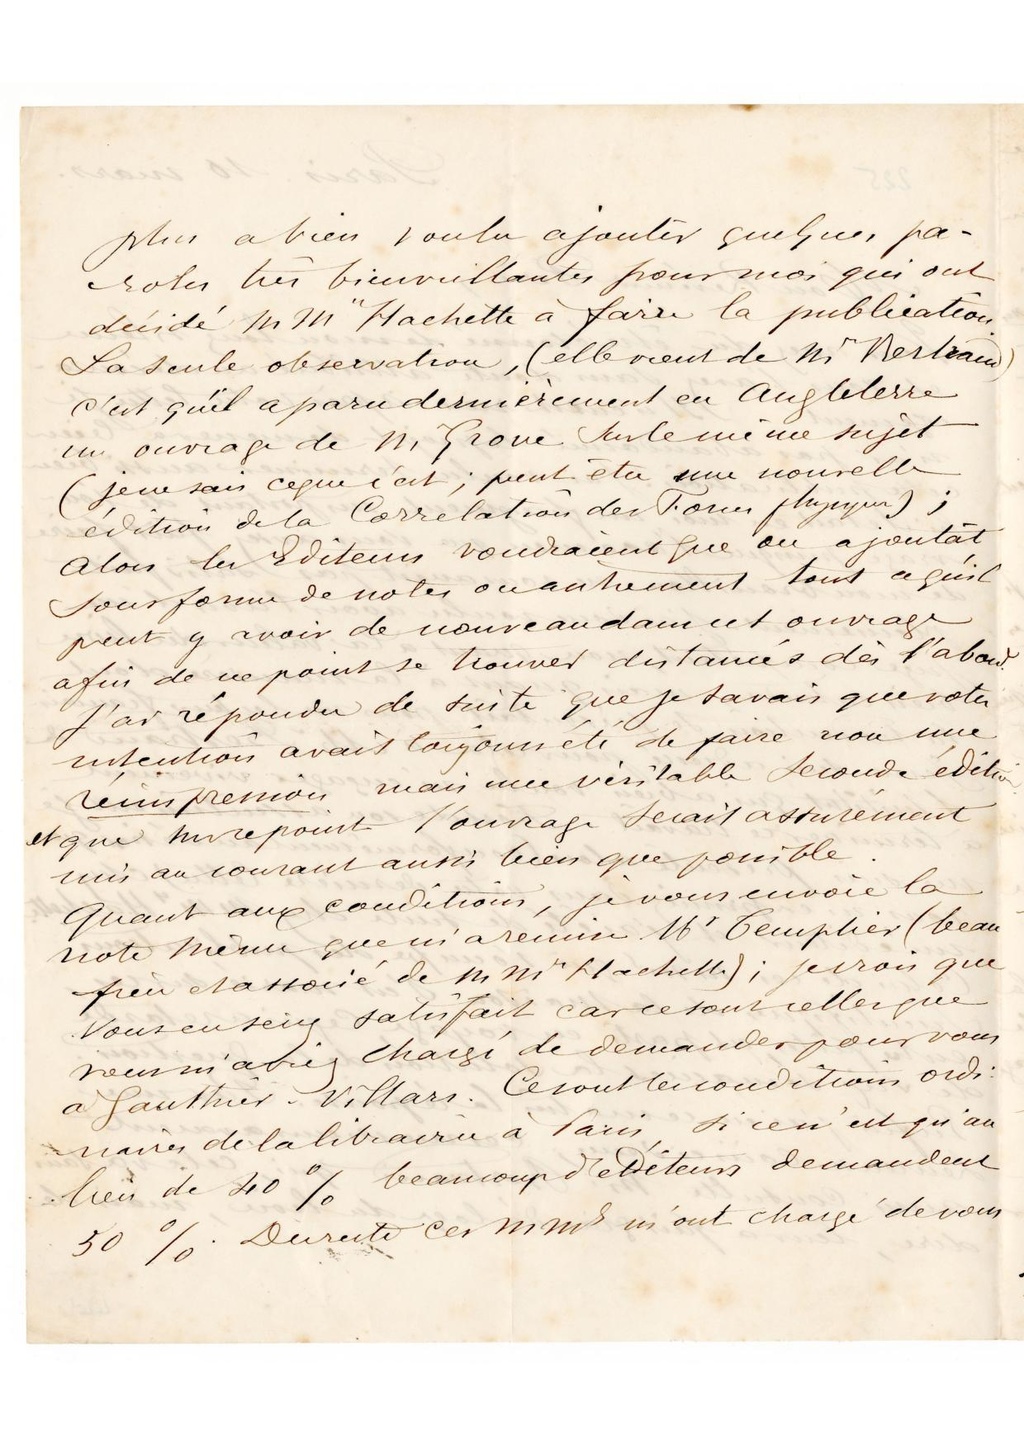 plus a bien voulu ajouter quelques pa-
roles très bienveillantes pour moi qui ont
décidé MMrs Hachette à faire la publication.
La seule observation, (elle vient de Mr Bertrand)
c'est qu'il a paru dernièrement en Angleterre
un ouvrage de M. Grove sur le même sujet
(je ne sais ce que c'est ; peut être une nouvelle
édition de la Correlation des Forces physiques) ;
alors les Editeurs voudraient que on ajoutât
sous forme de notes ou autrement tout ce qu'il
peut y avoir de nouveau dans cet ouvrage
afin de ne point se trouver distancés dès l'abord.
J'ai répondu de suite que je savais que votre
intention avait toujours été de faire non une
réimpression mais une véritable seconde édition
et que sur ce point l'ouvrage serait assurément
mis au courant aussi bien que possible.
Quant aux conditions, je vous envoie la
note même que m'a remise Mr Templier (beau
frère et associé de MMrs Hachette) ; je crois que
vous en serez satisfait car ce sont celles que
vous m'aviez chargé de demander pour vous
à Gauthier-Villars. Ce sont les conditions ordi-
naires de la librairie à Paris, si ce n'est qu'au
lieu de 40 % beaucoup d'editeurs demandent
50 %. Du reste ces MMrs m'ont chargé de vous